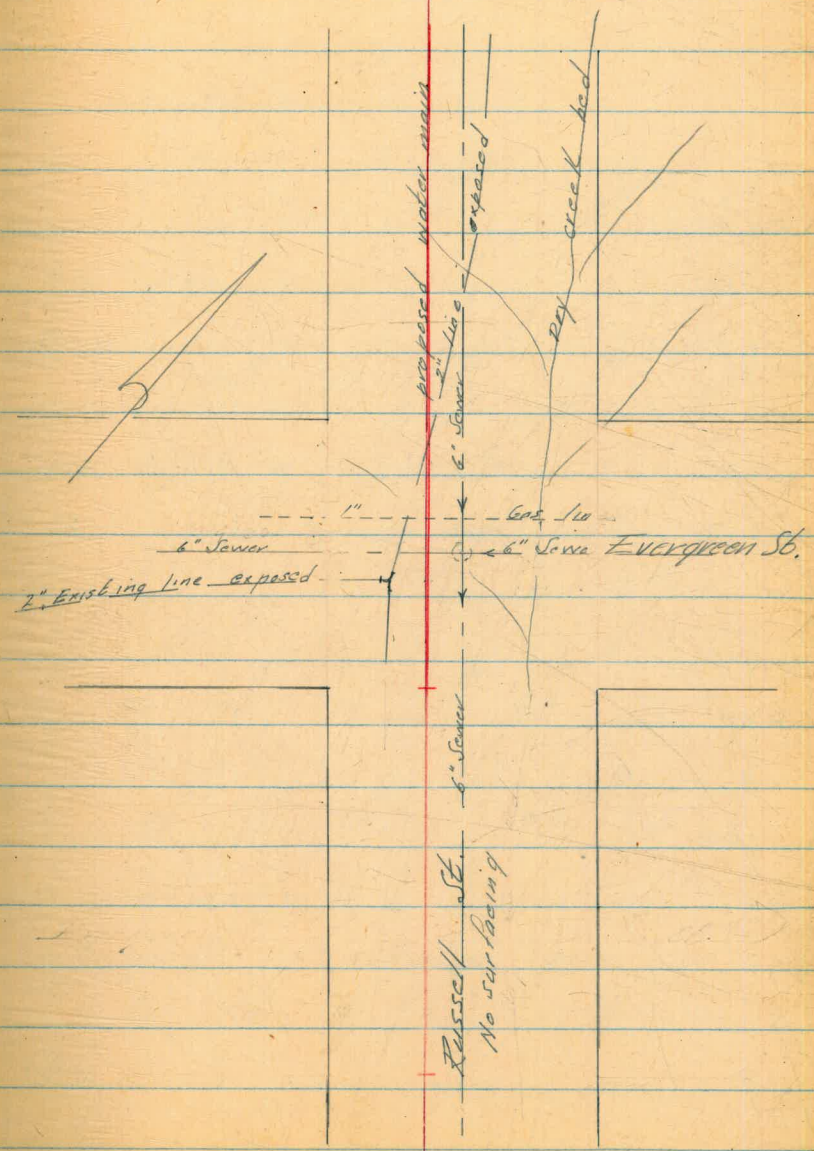 proposed water main
2" line
exposed
6" Sewer
Dry creek bed
1"
Gas
6" Sewer
6" Sewe
Evergreen St.
2" Existing line exposed
6" Sewer
Russell St.
No surfacing